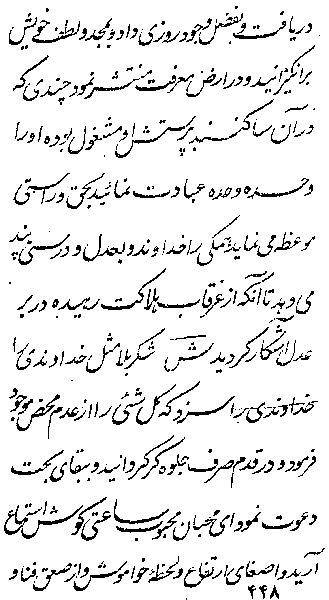 دریافت و بفضل وجود روزی داد و بمجد و لطف خویش
برانگیزانید و در ارض معرفت منتشر نمود چندی که
در آن ساکنند بپرستش او مشغول بوده او را
وحده وحده عبادت نمائید بحق و راستی
موعظه می نماید همگی را خداوند و بعدل و درستی پند
می دهد تا آنکه از غرقاب هلاکت رهیده در بر
عدل آشکار گردیدش شکر بلا مثل خداوندی را
خداوندی را سزد که کل شئی را از عدم محض موجود
فرمود و در قدم صرف جلوه گر گردانید و ببقای بحت
دعوت نمود ای محبان محبوب ساعتی گوش استماع
آرید و اصغای ارتفاع و لحظهٔ خواموش و از صعق فنا و
۴۴۸